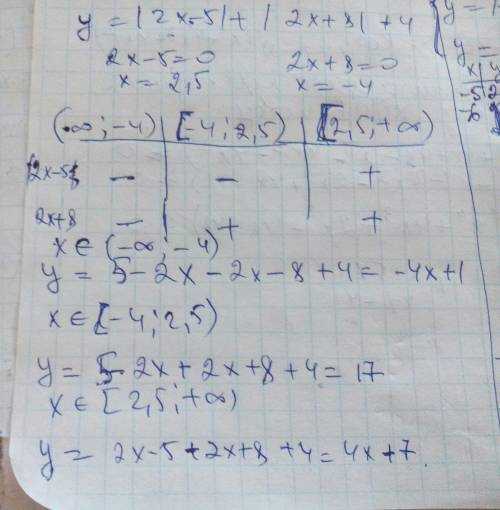 y = |2x-5| + |2x+8| +4
2x-5=0 2x+8=0
x= 2,5 x= -4
(-∞; -4) [-4; 2,5) [2,5; +∞)
2x-5 - - +
2x+8 - + +
x∈ (-∞; -4)
y = 5-2x-2x-8+4= -4x+1
x∈[-4; 2,5)
y= 5-2x+2x+8+4=17
x∈ [2,5; +∞)
y= 2x-5+2x+8+4=4x+7.
y=
y=
x
-5 2
-6 8